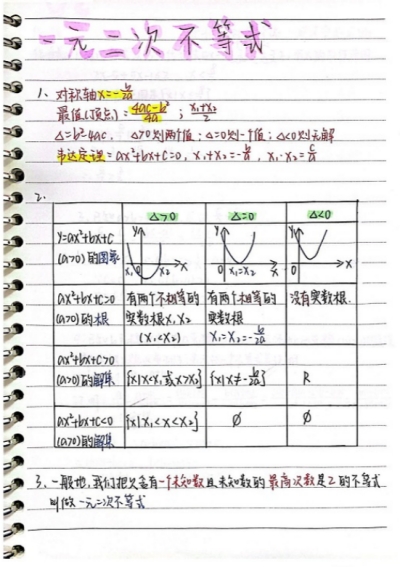 一元二次不等式
1、对称轴x=-b/2a
最值(顶点)=4ac-b²/4a ; x₁+x₂/2
△=b²-4ac, △>0则两个值; △=0则一个值; △<0则无解
韦达定理=ax²+bx+c=0, x₁+x₂=-b/a, x₁·x₂=c/a
2.
△>0 △=0 △<0
y=ax²+bx+c (a>0)的图象
y 0 x₁ x₂ x
y 0 x₁=x₂ x
y 0 x
ax²+bx+c=0 (a>0)的根
有两个不相等的实数根x₁,x₂ (x₁<x₂)
有两个相等的实数根 x₁=x₂=-b/2a
没有实数根.
ax²+bx+c>0 (a>0)的解集
{x|x<x₁或x>x₂}
{x|x≠-b/2a}
R
ax²+bx+c<0 (a>0)的解集
{x|x₁<x<x₂}
∅
∅
3、一般地,我们把只含有一个未知数且未知数的最高次数是2的不等式
叫做一元二次不等式